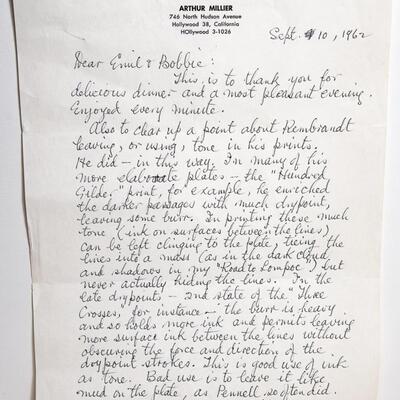 ARTHUR MILLIER
746 North Hudson Avenue
Hollywood 38, California
HOllywood 3-1026
Sept. 10, 1962
Dear Emil & Bobbie:
This is to thank you for
delicious dinner and a most pleasant evening.
Enjoyed every minute.
Also to clear up a point about Rembrandt
leaving, or using, tone in his prints.
He did — in this way. In many of his
more elaborate plates — the "Hundred
Gilder" print, for example, he enriched
the darker passages with much drypoint,
leaving some burr. In printing these much
tone (ink on surfaces between the lines)
can be left clinging to the plate, tieing the
lines into a mass (as in the dark cloud
and shadows in my "Road to Lompoc") but
never actually hiding the lines. In the
late drypoints — 2nd state of the "Three
Crosses, for instance — the burr is heavy
and so holds more ink and permits leaving
more surface ink between the lines without
obscuring the force and direction of the
drypoint strokes. This is good use of ink
as tone. Bad use is to leave it like
mud on the plate, as Pennell so often did.